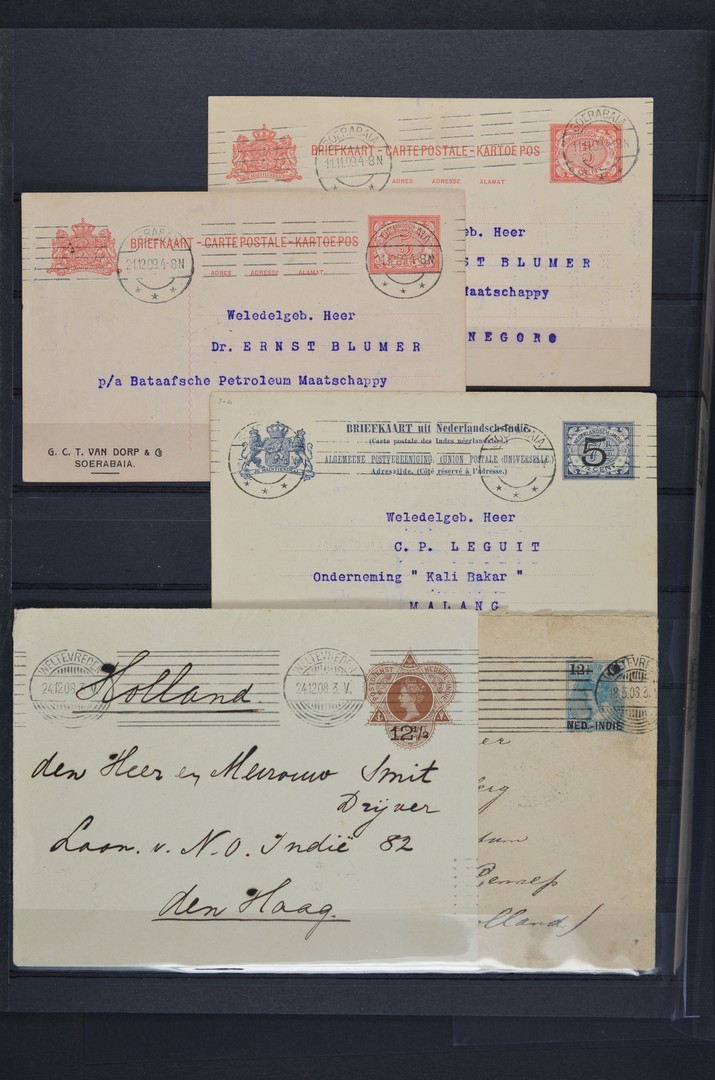 SOERABAIA
11.11.09.4-8N
BRIEFKAART - CARTE POSTALE - KARTOE POS
ADRES ADRESSE ALAMAT
eb. Heer
ST BLUMER
Maatschappy
NEGORO
BRIEFKAART - CARTE POSTALE - KARTOE POS
21.12.09.4-8N
ADRES ADRESSE ALAMAT
Weledelgeb. Heer
Dr. ERNST BLUMER
p/a Bataafsche Petroleum Maatschappy
G. C. T. VAN DORP & Co
SOERABAIA.
BRIEFKAART uit Nederlandsch-Indië.
(Carte postale des Indes néerlandaises.)
ALGEMEENE POSTVEREENIGING (UNION POSTALE UNIVERSELLE)
Adreszijde. (Côté réservé à l'adresse.)
5
Weledelgeb. Heer
C. P. LEGUIT
Onderneming " Kali Bakar "
MALANG
WELTEVREDEN
24.12.08.3 V.
Holland
WELTEVREDEN
24.12.08.3 V.
12½
den Heer en Mevrouw Smit
Drijver
Laan. v. N. O. Indië 82
den Haag.
12½
NED.-INDIË